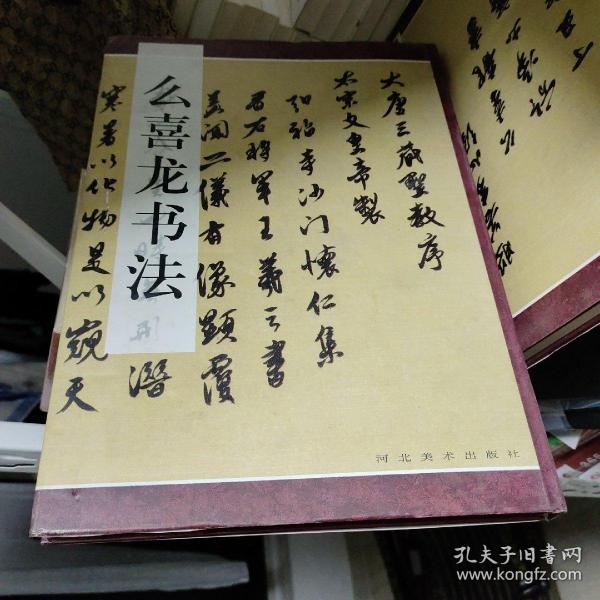 么喜龙书法
大唐三藏聖教序
太宗文皇帝製
弘福寺沙门懷仁集
晋右将軍王羲之書
盖闻二儀有像顯覆
潛
寒暑以化物是以窺天
河北美术出版社
孔夫子旧书网
www.kongfz.com